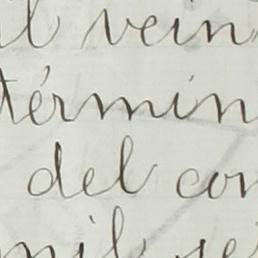 l vein
términ
del con
mil se